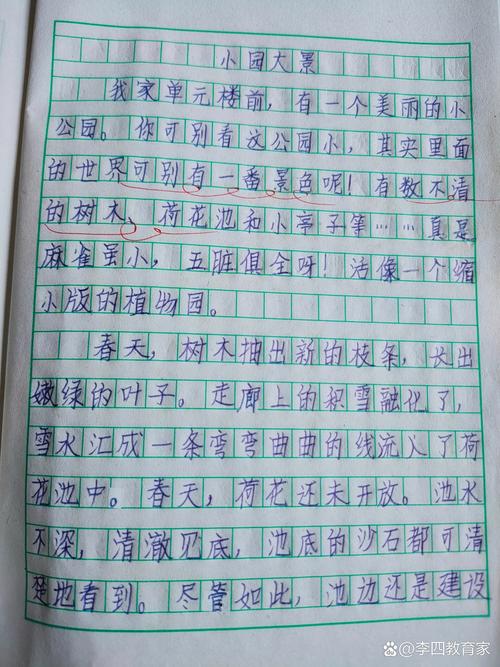 小园大景
我家单元楼前，有一个美丽的小
公园。你可别看这公园小，其实里面
的世界可别有一番景色呢！有数不清
的树木、荷花池和小亭子等……真是
麻雀虽小，五脏俱全呀！活像一个缩
小版的植物园。
春天，树木抽出新的枝条，长出
嫩绿的叶子。走廊上的积雪融化了，
雪水汇成一条弯弯曲曲的线流入了荷
花池中。春天，荷花还未开放。池水
不深，清澈见底，池底的沙石都可清
楚地看到。尽管如此，池边还是建设
李四教育家